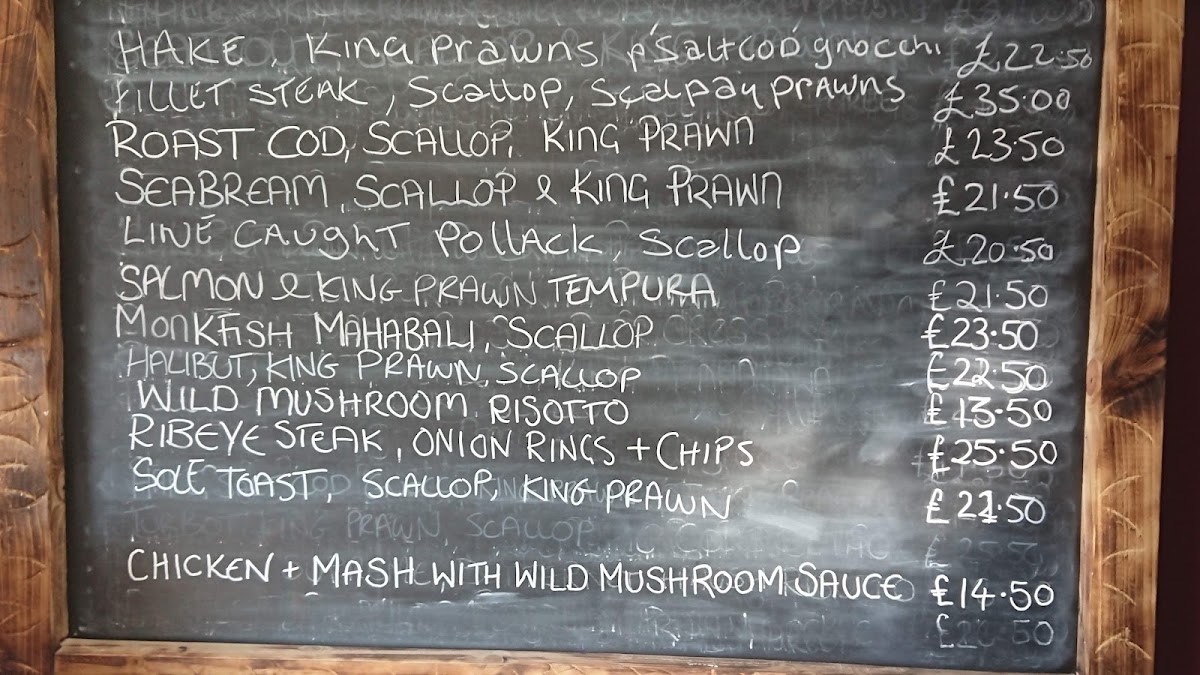 HAKE, King Prawns p'Saltcod' gnocchi £22.50
FILLET STEAK, Scallop, Scalpay prawns £35.00
ROAST COD, SCALLOP, KING PRAWN £23.50
SEABREAM, SCALLOP & KING PRAWN £21.50
LINE CAUGHT POLLACK, Scallop £20.50
SALMON & KING PRAWN TEMPURA £21.50
MONKFISH MAHABALI, SCALLOP £23.50
HALIBUT, KING PRAWN, SCALLOP £22.50
WILD MUSHROOM RISOTTO £13.50
RIBEYE STEAK, ONION RINGS + CHIPS £25.50
SOLE TOAST, SCALLOP, KING PRAWN £21.50
PRAWN, SCALLOP
CHICKEN + MASH WITH WILD MUSHROOM SAUCE £14.50